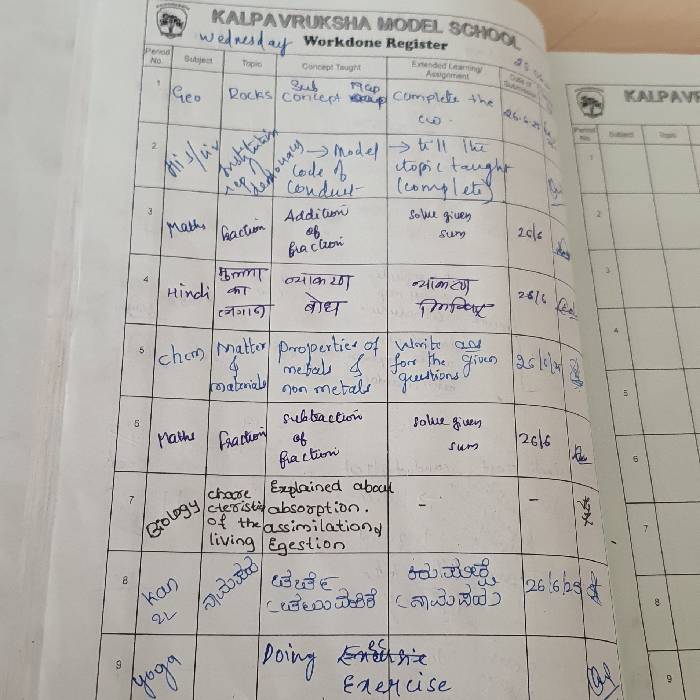 KALPAVRUKSHA MODEL SCHOOL
Wednesday Workdone Register
Period No. Subject Topic Concept Taught Extended Learning/ Assignment Date of Submission
1 Geo Rocks Sub Concept Map Complete the cw. 26.6.25
2 His/civ Institution → Model Code of Conduct → tell the topic taught (complete)
3 Maths fraction Addition of fraction Solve given sum 26/6
4 Hindi मुन्ना का व्याकरण बोध व्याकरण 26/6
5 Chem Matter & materials Properties of metals & non metals Write ans for the given questions 26/6/25
6 Maths fraction subtraction of fraction Solve given sum 26/6
7 Biology charecteristic of the living Explained about absorption. assimilation & Egestion - -
8 Kan 2L ನಾಮಪದ 26/6/25
9 yoga Doing Exercise
KALPAV
Period No. Subject Topic
1
2
3
4
5
6
7
8
9